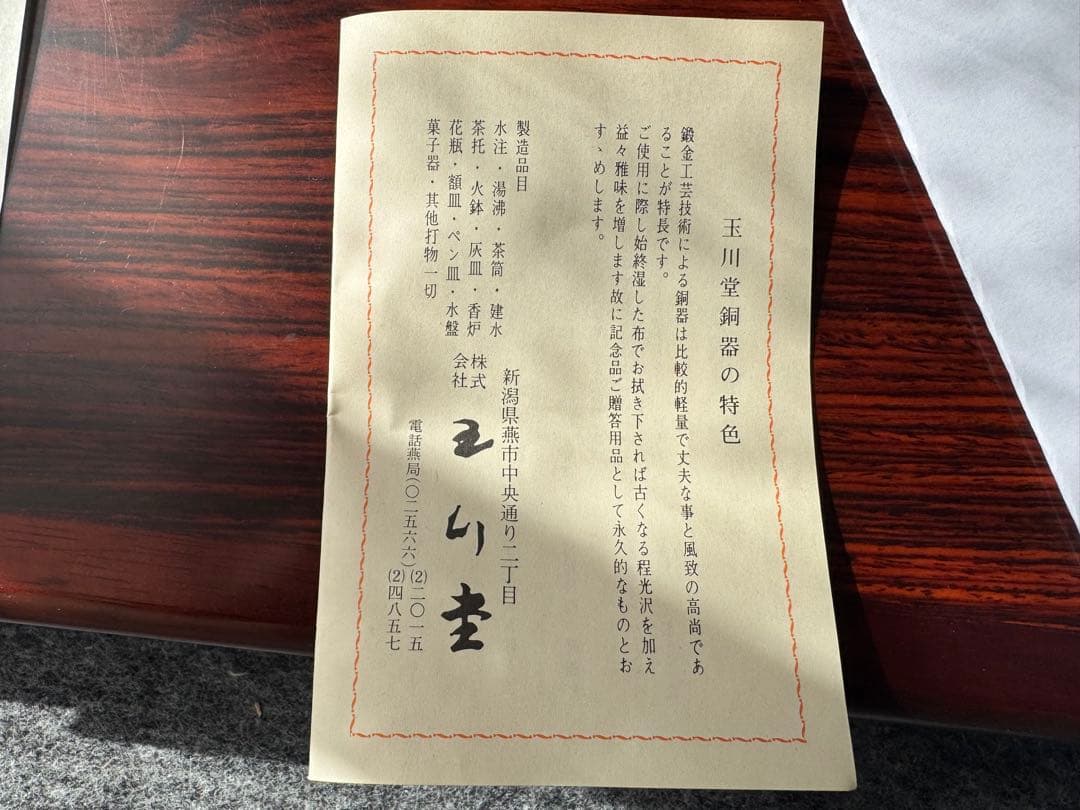 玉川堂銅器の特色
鍛金工芸技術による銅器は比較的軽量で丈夫な事と風致の高尚であ
ることが特長です。
ご使用に際し始終湿した布でお拭き下されば古くなる程光沢を加え
益々雅味を増します故に記念品ご贈答用品として永久的なものとお
すゝめします。
製造品目
水注・湯沸・茶筒・建水
茶托・火鉢・灰皿・香炉
花瓶・額皿・ペン皿・水盤
菓子器・其他打物一切
新潟県燕市中央通り二丁目
株式
会社
玉川堂
電話燕局(〇二五六六)(2)二〇一五
(2)四八五七